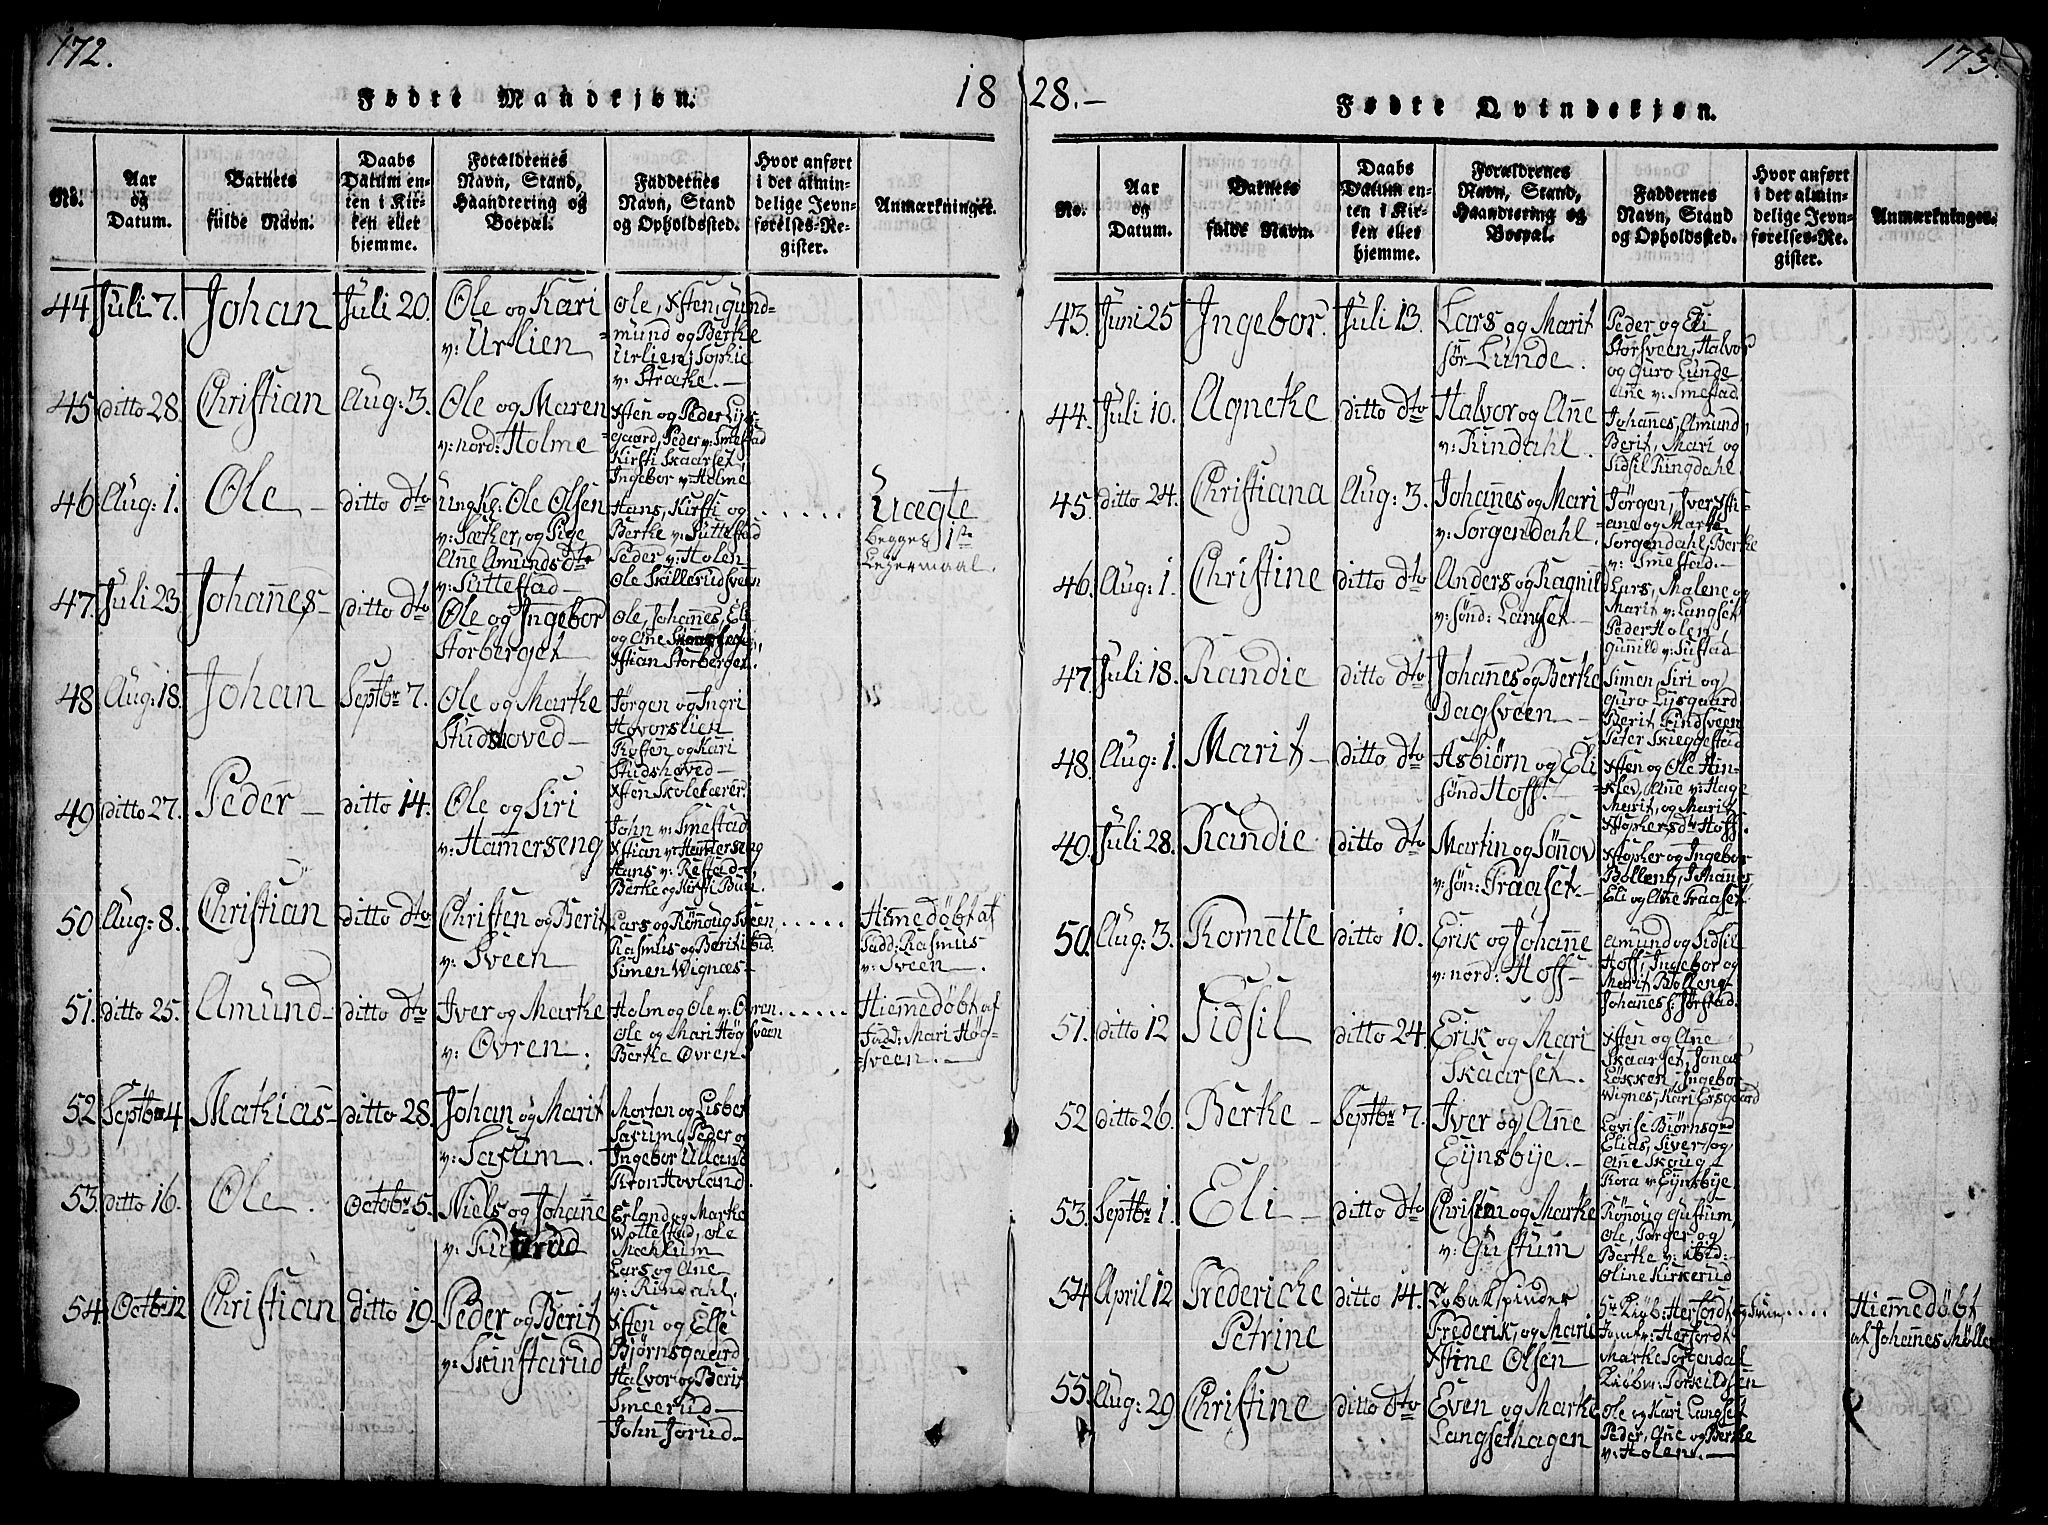 172.
Fødte Mandkjøn.
18
No.
Aar
og
Datum.
Barnets
fulde Navn.
Daabs
Datum en-
ten i Kir-
ken eller
hjemme.
Forældrenes
Navn, Stand,
Haandtering og
Boepæl.
Faddernes
Navn, Stand
og Opholdssted.
Hvor anført
i det almin-
delige Jevn-
førelses-Re-
gister.
Anmærkninger.
44 Juli 7. Johan Juli 20.
Ole og Kari
v: Urlien
Ole, Xsten, Gund-
mund og Berthe
Urlien, Sophie
v: Stræthe.
45 ditto 28 Christian Aug: 3.
Ole og Maren
v: nord: Holme
Xsten og Peder Lys-
gaard, Peder v: Smestad
Kirsti Skaarset
Ingebor v: Holme
46 Aug: 1. Ole ditto dto
Ungke: Ole Olsen
v: Sæther, og Pige
Ane Amunds dtr
v: Suttestad
Hans, Kirsti og
Berthe v: Suttestad
Peder v: Holen
Ole Skillesudsveen
Uægte
Begges 1ste
Lejermaal.
47. Juli 23 Johanes ditto dto
Ole og Ingebor
Storberget
Ole, Johannes, Eli
og Ane
Xstian Storberget.
48 Aug: 18. Johan Septbr 7.
Ole og Marthe
Studshoved
Jørgen og Ingri
Hovorslien
Kari
Studshoved
Xsten Skolelærer.
49 ditto 27. Peder ditto 14.
Ole og Siri
v: Hamerseng
John v: Smestad
Xstian v: Hamerseng
Hans v: Restad
Berthe og Kirsti
50 Aug: 8. Christian ditto dto
Christen og Berit
v: Sveen
Lars og Rønoug Sveen
Rasmus og Berit ibid.
Simen Wignæs
Hiemedøbt af
Fadd: Rasmus
v: Sveen
51. ditto 25. Amund ditto dto
Iver og Marthe
v: Øvren.
Holm og Ole v: Øvren
Ole og Mari Høgsveen
Berthe Øvren
Hiemedøbt af
Fadd: Mari Høg-
sveen.
52 Septbr 4 Mathias ditto 28.
Johan og Marit
v: Saxum.
Morten og Lisbet
Saxum, Peder og
Ingebor Ulland
Hovland
53. ditto 16. Ole. Octobr 5.
Niels og Johanne
v:
Erland og Marthe
Wollestad, Ole
Mæhlum
Lars og Ane
v: Rindahl.
54 Octbr 12 Christian ditto 19.
Peder og Berit
v: Skinstarud
Xsten og Else
Bjørnsgaard
Halvor og Berit
Smeerud
John Jorud
28.
175.
Fødte Qvindekjøn.
No.
Aar
og
Datum.
Barnets
fulde Navn.
Daabs
Datum en-
ten i Kir-
ken eller
hjemme.
Forældrenes
Navn, Stand,
Haandtering og
Boepæl.
Faddernes
Navn, Stand,
og Opholdssted.
Hvor anført
i det almin-
delige Jevn-
førelses-Re-
gister.
Anmærkninger.
43. Juni 25 Ingebor. Juli 13.
Lars og Marit
sør Lunde.
Peder og Eli
Storsveen, Halvor
og Guro Lunde
Ane v: Smestad
44. Juli 10. Agnethe ditto dto
Halvor og Ane
v: Rindahl.
Johanes, Amund,
Berit, Mari og
Sidsil Ringdahl
45. ditto 24. Christiana Aug: 3.
Johanes og Mari
v: Sorgendahl.
Jørgen, Iver, Xsti-
ane og Marthe
Sorgendahl, Berthe
v: Smestad
46. Aug: 1. Christine ditto dto
Anders og Ragnild
v: sønd: Langset
Lars, Malene og
Marit v: Langset
Peder Holen
Gunild v: Sustad
47. Juli 18. Randie ditto dto
Johanes og Berthe
Dagsveen
Simen, Siri og
Guro Lysgaard
Berit Lindsveen
Peter Skieggestad
48. Aug: 1. Marit ditto dto
Asbiørn og Eli
sønd Hoff.
Xsten og Ole Hin-
klev, Ane v: Hage
Marit, og Marit
Xstophersdtr Hoff.
49. Juli 28. Randie ditto dto
Martin og Sønov
v: søn: Traaset
Xstopher og Ingebor
Bolleng, Johanes
Eli og Ane Traaset
50. Aug: 3. Kornette ditto 10.
Erik og Johanne
v: nord: Hoff
Amund og Sidsil
Hoff, Ingebor og
Marit Bolleng
Johanes s: Jørstad
51. ditto 12 Sidsil ditto 24.
Erik og Mari
Skaarset.
Xsten og Ane
Skaarset, Jonas
Løkken, Ingebor
Wignes, Kari Ersgaard
52 ditto 26. Berthe Septbr 7.
Iver og Ane
Eynsbye.
Lovise Bjørnsgrd
Elias, Siver og
Ane Skoug
Kora v: Eynsbye.
53. Septbr 1. Eli ditto dto
Christen og Marthe
v: Gustum
Rønoug Gustum,
Ole, Torger og
Berthe v: ibid:
Oline Kirkerud
54. April 12 Frederiche
Petrine ditto 14.
Tobakspinder
Frederik, og Marie
Xstine Olsen
Kiøb: Herfordt og Frue
Jomf: v: Herfordt
Marthe Sorgendal
Kiøbm: Torkildsen
Hiemedøbt
af Johannes Møller
55. Aug: 29 Christine ditto dto
Even og Marthe
Langsethagen
Ole og Kari Langset
Peder, Ane og Berthe
v: Holen.